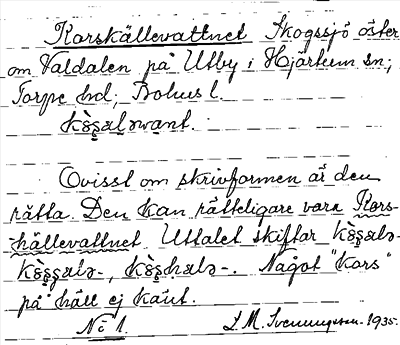 Korskällevattnet Skogssjö öster
om Valdalen på Utby i Hjärtum sn;
Torpe hd; Bohusl.
Ovisst om skrivformen är den
rätta. Den kan rätteligare vara Kors-
hällevattnet. Uttalet skiftar
Något "kors"
på häll ej känt.
No 1. L. M. Svenungsson - 1935.